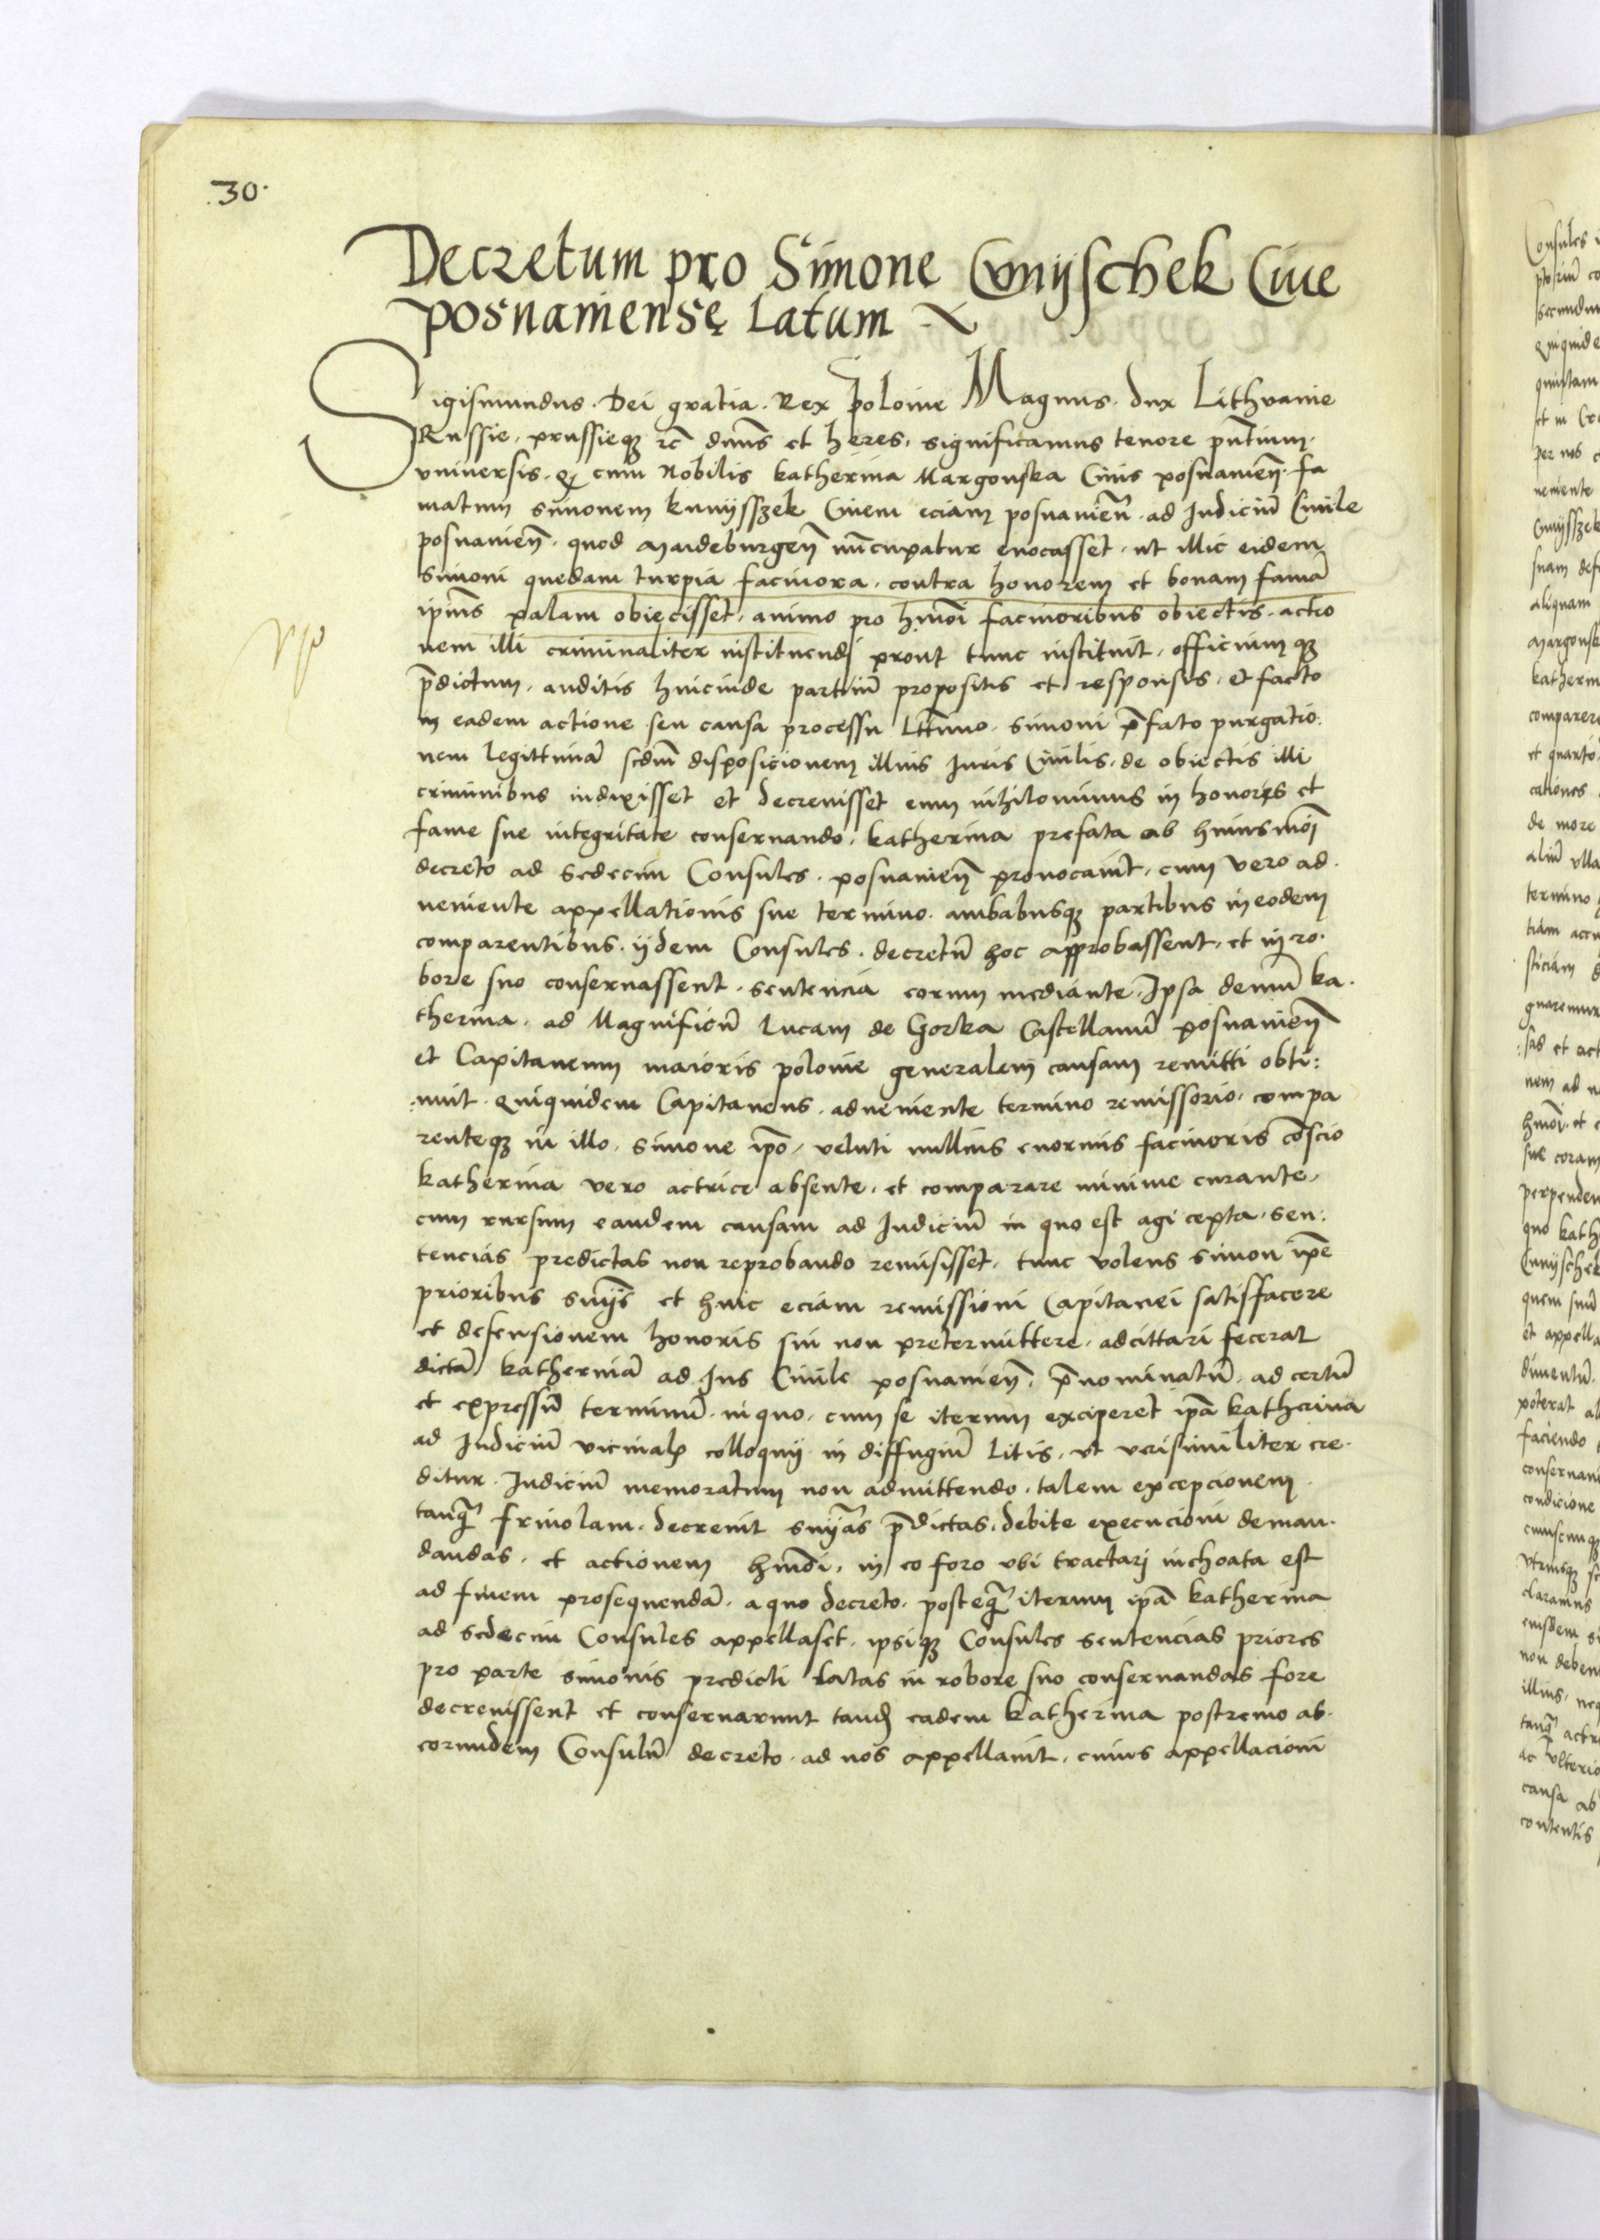 .30.
Decretum pro Simone Cvnyschek Ciue
posnaniensę Latum
Sigismundus. Dei gratia. Rex Polonie Magnus. dux Lithvanie
Russie, prussieqȝ rc̄ dmn̄s et heres, significamus tenore pn̄tium.
vniuersis. cum Nobilis katherina Margonska Ciuis posnanien̄. fa
matum Simonem knnyssȝek Ciuem eciam posnanien̄. ad Judiciū Ciuile
posnanien̄. quod Maideburgen̄ nūcupatur euocasset. ut illic eidem
Simoni quedam turpia facinora. contra honorem et bonam famā
ip̄ius palam obiecisset, animo pro hm̄oi facinoribus obiectis. actio
nem illi criminaliter instituendi prout tunc instituit, officiumqȝ
p̄dictum, auditis hincinde partiuȝ propositis et responsis, et facto
in eadem actione seu causa processu Lttimo. Simoni p̄fato purgatio:
nem legittimā scdm̄ disposicionem illius Juris Ciuilis, de obiectis illi
criminibus indixisset et decreuisset eum nihilominus in honoris et
fame sue integritate conseruando, katherina prefata ab huiusmōi
decreto ad sedecim Consules. posnanien̄ prouocauit, cum vero ad.
ueniente appellationis sue termino. ambabusqȝ partibus in eodem
comparentibus. ijdem Consules. decretū hoc approbassent, et in ro.
bore suo conseruassent. sentencia eorum mediante, Ipsa demū ka.
therina. ad Magnificū Lucam de Gorka Castellanū posnanien̄
et Capitaneum maioris polonie generalem causam remitti obti:
nuit. quiquidem Capitaneus. adueniente termino remissorio. compa
renteqȝ in illo. Simone ip̄o, veluti nullius enormis facinoris cōscio
katherina vero actrice absente. et comparare minime curante,
cum rursum eandem causam ad Judiciū in quo est agi cepta. sen:
tencias predictas non reprobando remisisset. tunc volens Simon ip̄e
prioribus snÿs et huic eciam remissioni Capitanei satisfacere
et defensionem honoris sui non pretermittere. adcittari fecerat
dictā katherinā ad Jus Ciuile posnanien̄. p̄nominatū. ad certū
et expressū terminū. in quo. cum se iterum exciperet ip̄a katherina
ad Judiciū vicinalꝭ colloquij in diffugiū Litis, vt verisimiliter cre.
ditur. Judiciū memoratum non admittendo. talem excepcionem
tanqȝ̄ friuolam. decreuit snÿas p̄dictas. debite execucioni deman.
dandas. et actionem hm̄oi, in eo foro vbi tractari inchoata est
ad finem prosequendā. a quo decreto. posteqȝ̄ iterum ip̄a katherina
ad sedecim Consules appellaset. ipsiqȝ Consules sentencias priores
pro parte Simonis predicti Latas in robore suo conseruandas fore
decreuissent et conseruarunt tandꝫ eadem katherina postremo ab.
eorumdem Consulū decreto. ad nos appellauit. cuius appellacioni